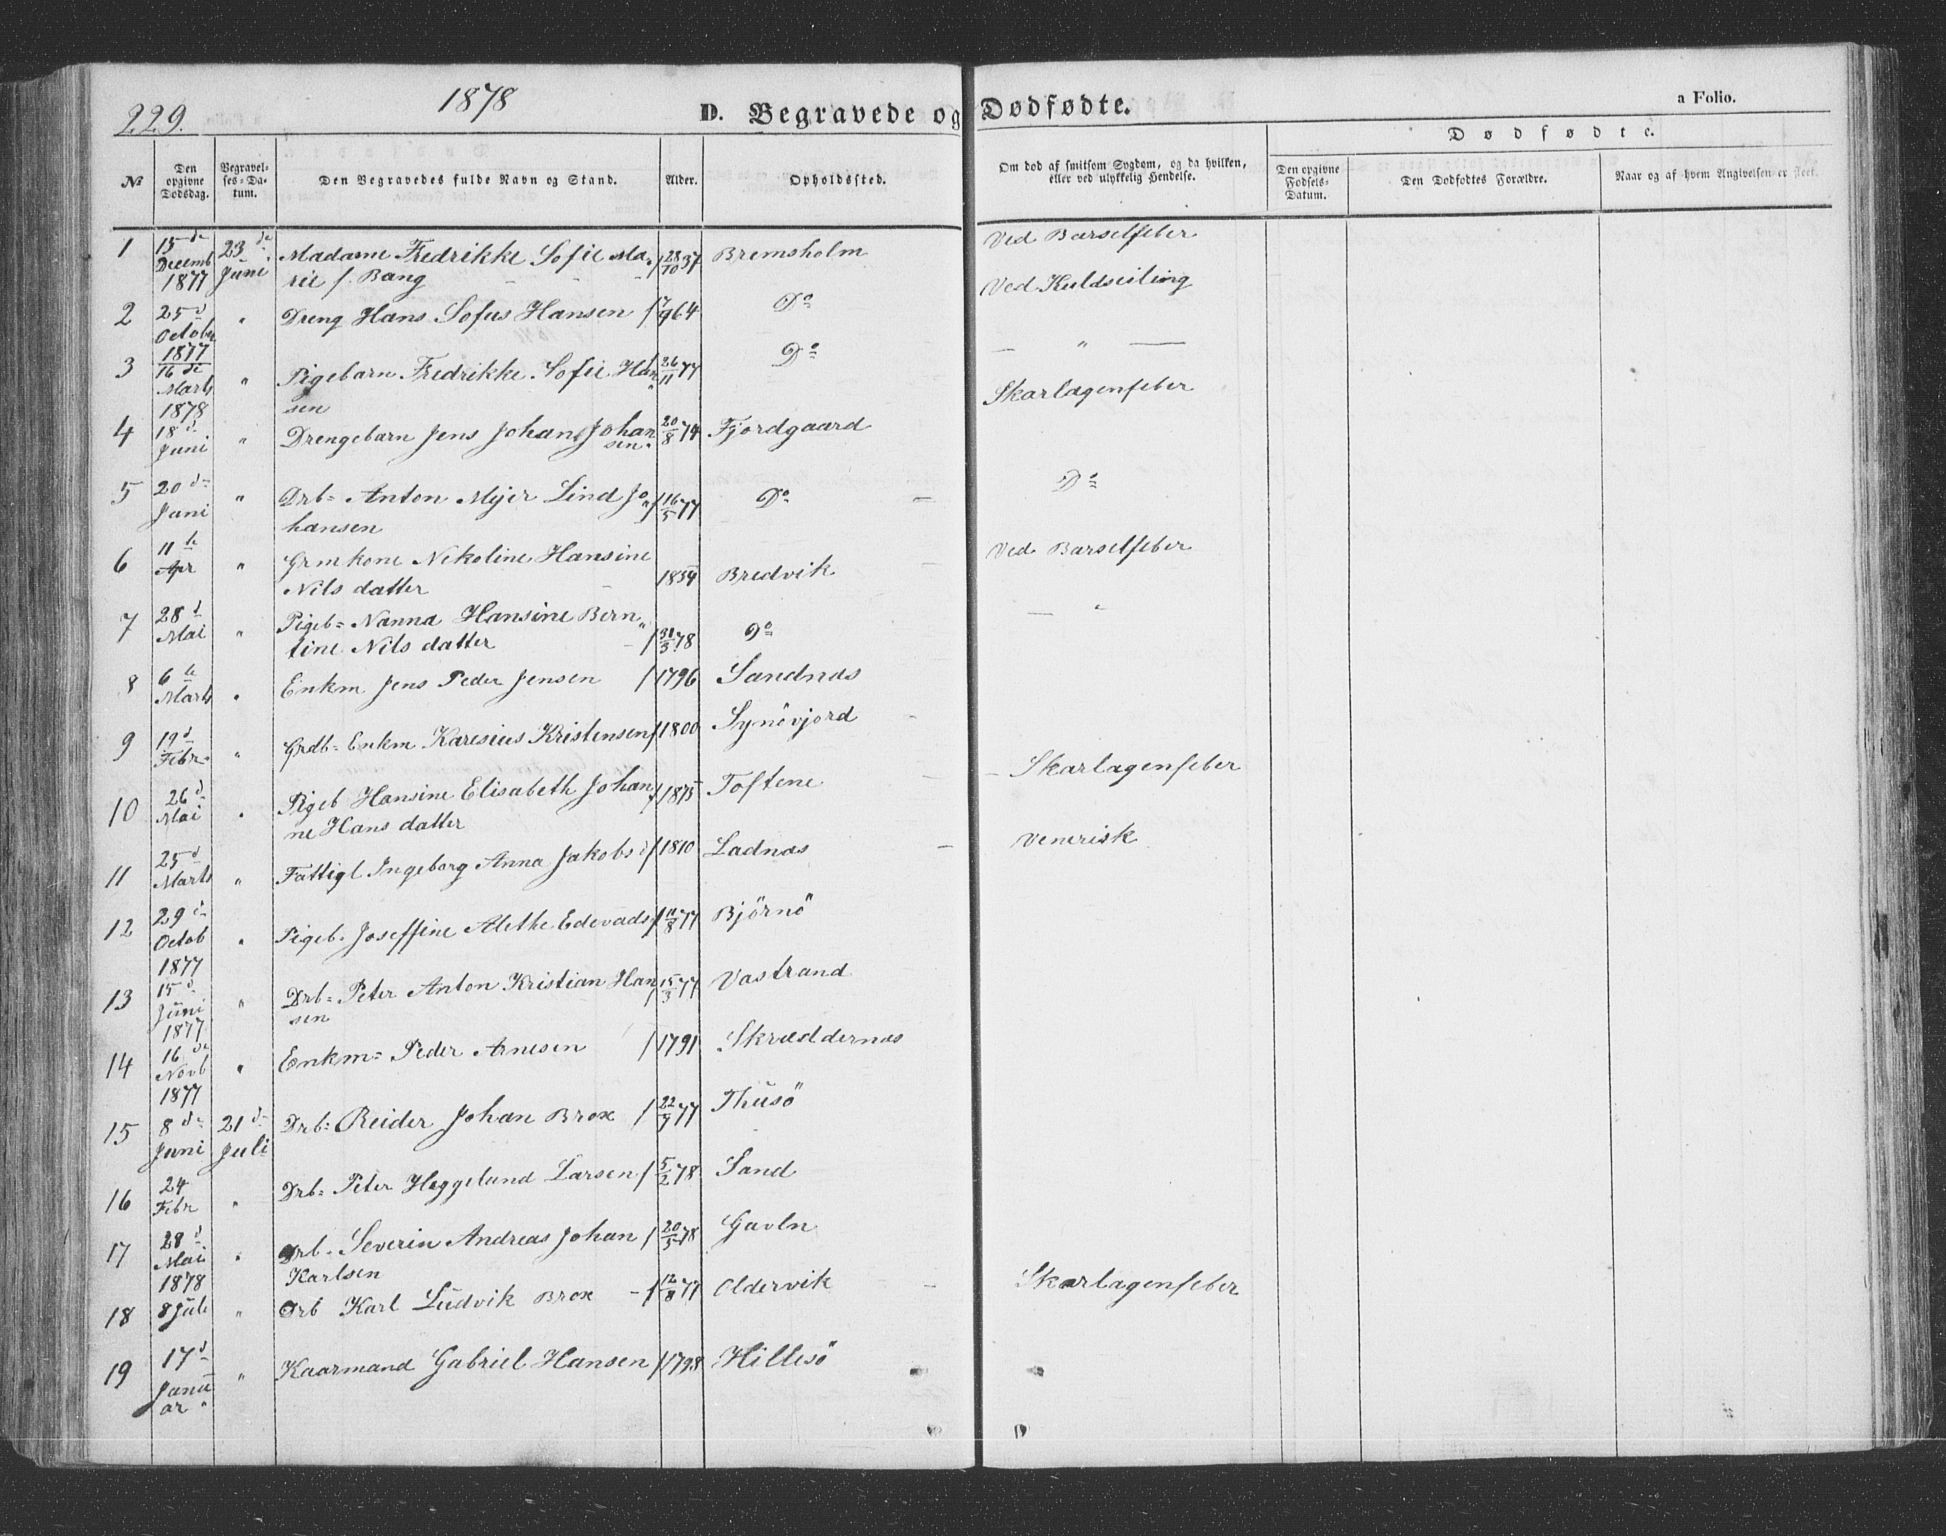 229.
1878
D. Begravede og Dødfødte.
a Folio.
№
Den opgivne Dødsdag.
Begravelses-Datum.
Den Begravedes fulde Navn og Stand.
Alder.
Opholdssted.
Om død af smitsom Sygdom, og da hvilken, eller ved ulykkelig Hendelse.
Dødfødte.
Den opgivne Fødsels-Datum.
Den Dødfødtes Forældre.
Naar og af hvem Angivelsen er skeet.
1 15de Decemb 1877 23de Juni Madame Fredrikke Sofie Marie f. Bang f 28/10 37 Bremsholm Ved Barselfeber
2 25d October 1877 " Dreng Hans Sofus Hansen f 7/9 64 Do Ved Kuldseiling
3 16de Marts 1878 " Pigebarn Fredrikke Sofie Hansen f 26/11 77 Do — " —
4 18d Juni " Drengebarn Jens Johan Johansen 20/8 74 Fjordgaard Skarlagenfeber
5 20d Juni " Drb= Anton Mejer Lind Johansen f 16/5 77 Do — Do
6 11te Apr " Grmkone Nikoline Hansine Nils datter 1854 Bredvik Ved Barselfeber
7 28d Mai " Pigeb= Nanna Hansine Berntine Nils datter f 31/3 78 Do — "
8 6te Marts " Enkm Jens Peder Jensen f 1796 Sandnæs
9 19d Febr. " Grdb= Enkm Karesius Kristensen f 1800 Synövjord
10 26d Mai " Pigeb Hansine Elisabeth Johanne Hans datter f 1875 Toftene — Skarlagenfeber
11 25d Marts " Fattigl Ingeborg Anna Jakobsd f 1810 Ladnæs — Venerisk
12 29d Octob 1877 " Pigeb. Joseffine Alethe Edevads f 11/8 77 Björnö
13 15d Juni 1877 " Drb= Peter Anton Kristian Hansen f 15/3 77 Vastrand
14 16de Novb 1877 " Enkm= Peder Arnesen f 1791 Skræddernæs
15 8de Juni 21d Juli Drb= Reider Johan Brox f 22/9 77 Thusö
16 24 Febr " Drb= Peter Heggelund Larsen f 5/2 78 Sand
17 28d Mai 1878 " Drb. Severin Andreas Johan Karlsen f 20/5 78 Gavln
18 8 Juli " Drb Karl Ludvik Brox — f 12/8 77 Oldervik — Skarlagenfeber
19 17d Januar " " Kaarmand Gabriel Hansen f 1798 Hillesö